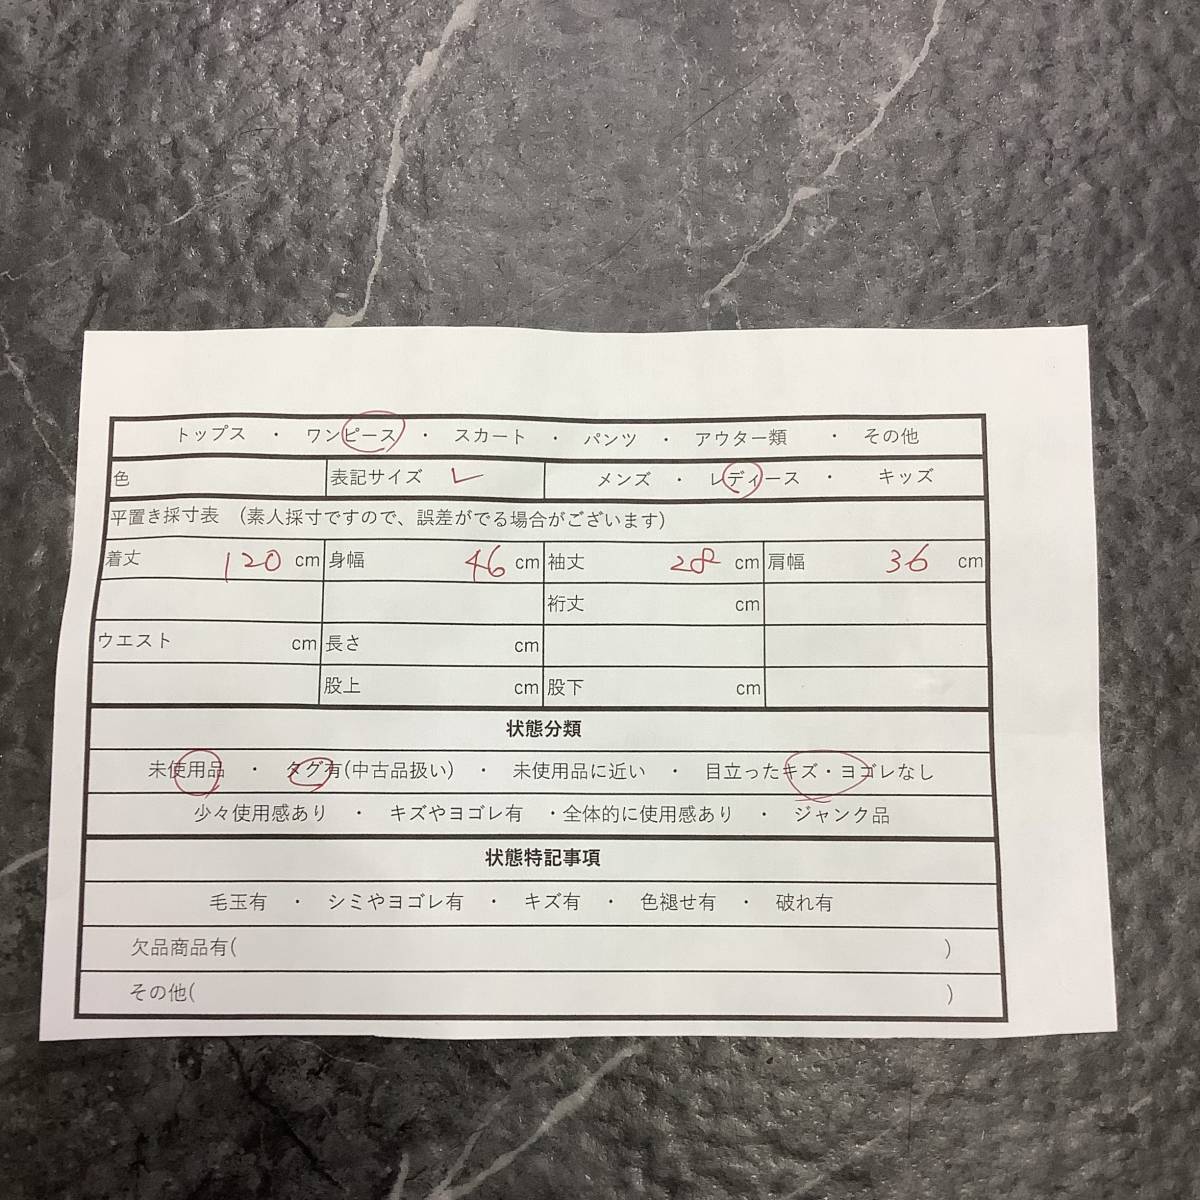 トップス ・ ワンピース ・ スカート ・ パンツ ・ アウター類 ・ その他
色 表記サイズ ✓ メンズ ・ レディース ・ キッズ
平置き採寸表 (素人採寸ですので、誤差がでる場合がございます)
着丈 120 cm 身幅 46 cm 袖丈 28 cm 肩幅 36 cm
裄丈 cm
ウエスト cm 長さ cm
股上 cm 股下 cm
状態分類
未使用品 ・ タグ有(中古品扱い) ・ 未使用品に近い ・ 目立ったキズ・ヨゴレなし
少々使用感あり ・ キズやヨゴレ有 ・全体的に使用感あり ・ ジャンク品
状態特記事項
毛玉有 ・ シミやヨゴレ有 ・ キズ有 ・ 色褪せ有 ・ 破れ有
欠品商品有( )
その他( )